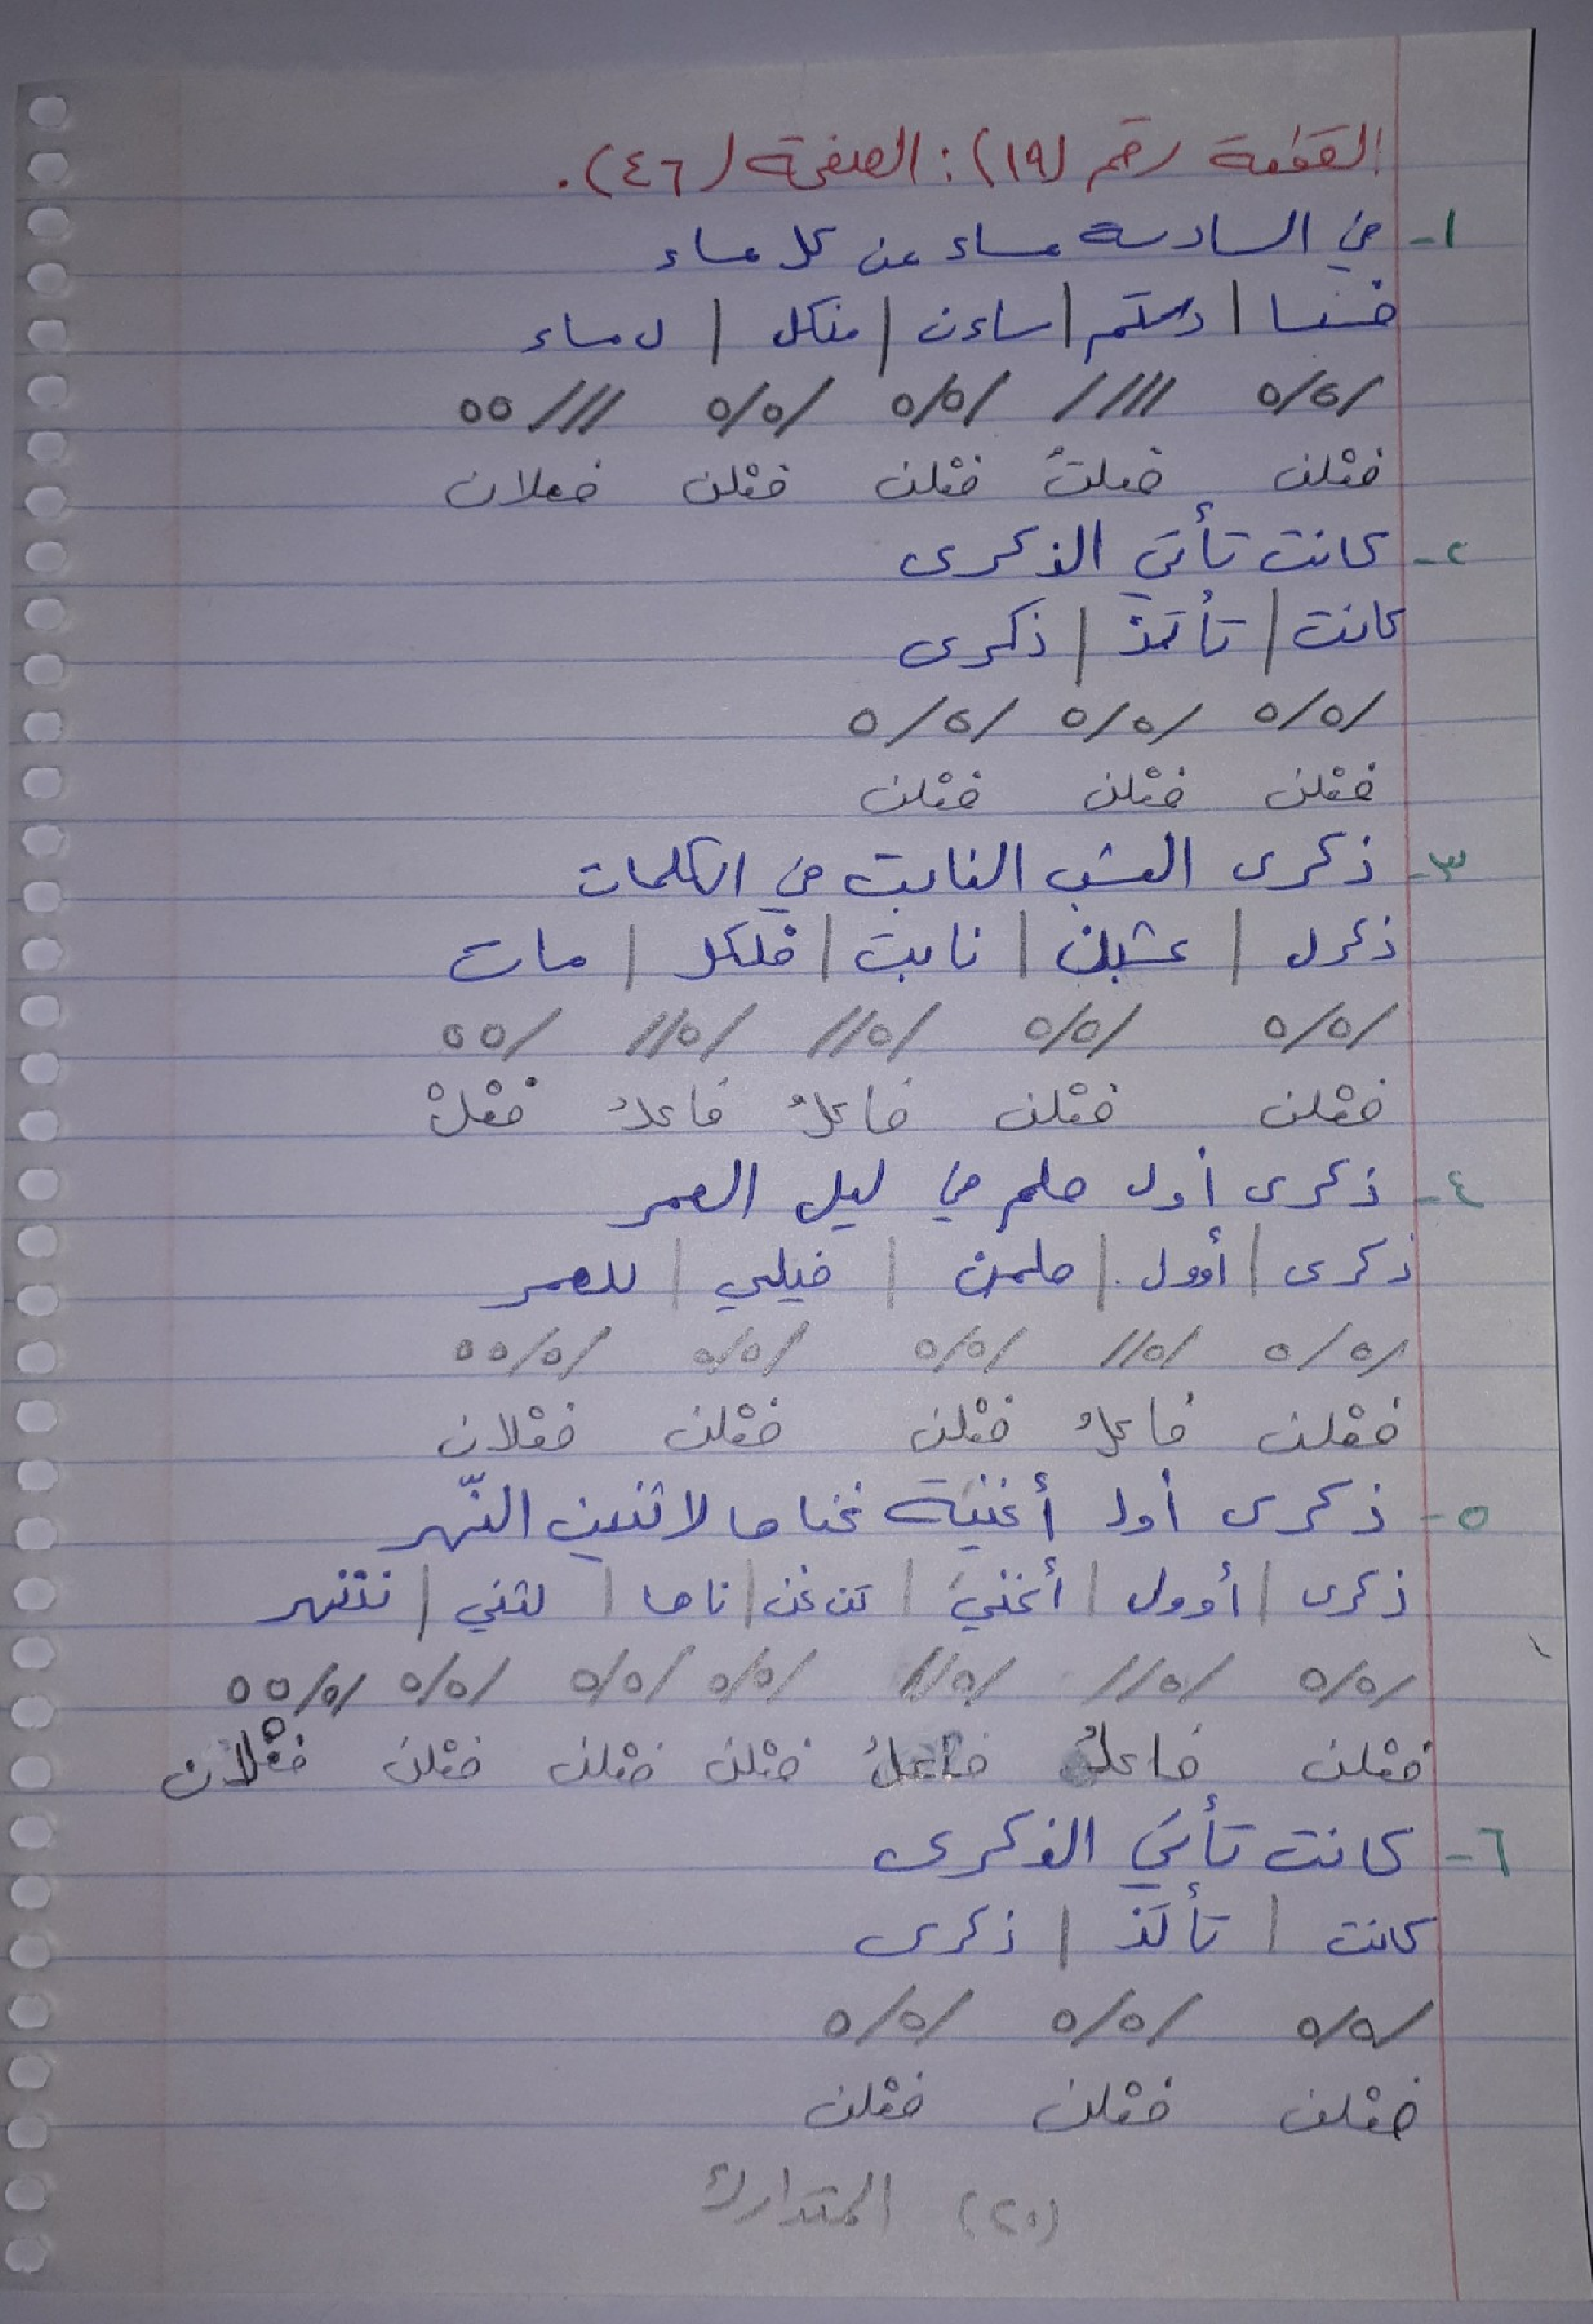 القطعة رقم (١٩): الصفحة (٤٦).
١- في السادسة مساء من كل مساء
فسسا | دستم | ساءن | منكل | ل مساء
/٥/٥ //// /٥/٥ /٥/٥ ///٥٥
فعْلن فعلتُ فعْلن فعْلن فعلان
٢- كانت تأتي الذكرى
كانت | تأتذ | ذكرى
/٥/٥ /٥/٥ /٥/٥
فعْلن فعْلن فعْلن
٣- ذكرى العشب النابت في الكلمات
ذكرل | عشبن | نابت | فلكل | مات
/٥/٥ /٥/٥ /٥// /٥// /٥٥
فعْلن فعْلن فاعلُ فاعلُ فعْلْ
٤- ذكرى أول حلم في ليل العمر
ذكرى | أوول | حلمن | فيلي | للعمر
/٥/٥ /٥// /٥/٥ /٥/٥ /٥/٥٥
فعْلن فاعلُ فعْلن فعْلن فعْلان
٥- ذكرى أول أغنية غناها لاثنين النّهر
ذكرى | أوول | أغنيَ | تن غن | ناها | لثني | ننّنهر
/٥/٥ /٥// /٥// /٥/٥ /٥/٥ /٥/٥ /٥/٥٥
فعْلن فاعلُ فاعلُ فعْلن فعْلن فعْلن فعْلان
٦- كانت تأتي الذكرى
كانت | تأتذ | ذكرى
/٥/٥ /٥/٥ /٥/٥
فعْلن فعْلن فعْلن
(٢٠) المتدارك